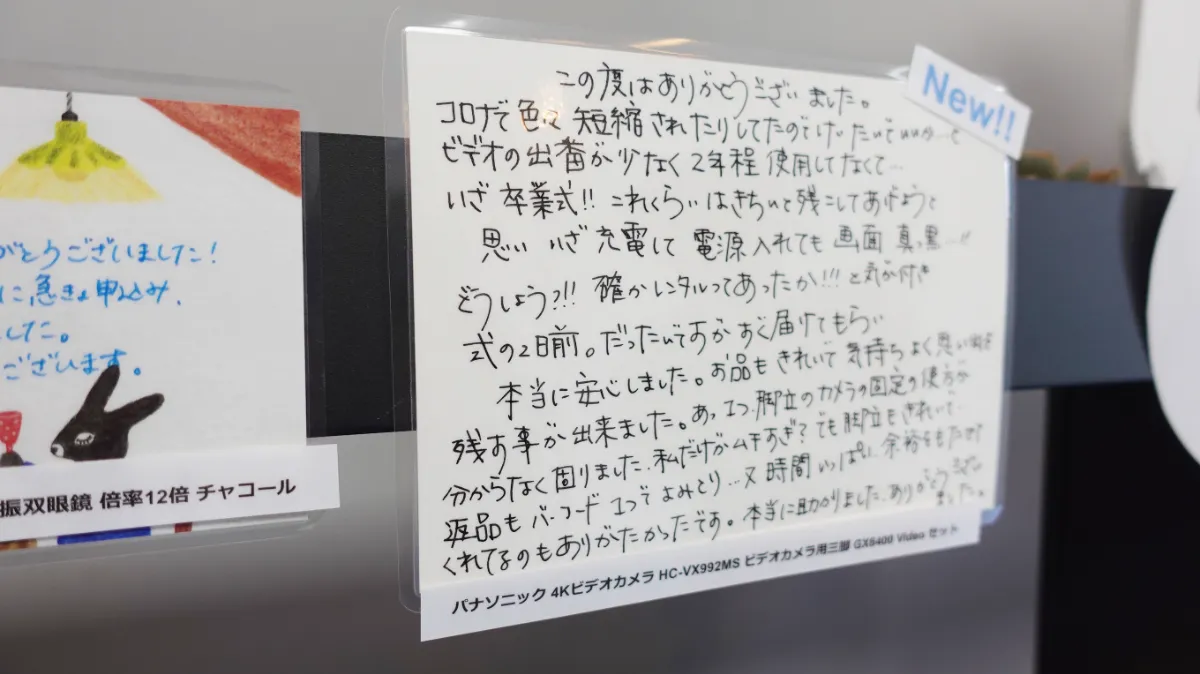 がとうございました!
に、急きょ申込み、
した。
ございます。
振双眼鏡 倍率12倍 チャコール
New!!
この度はありがとうございました。
コロナで色々短縮されたりしてたので
ビデオの出番が少なく2年程使用してなくて…
いざ卒業式!! これくらいはきちんと残こしてあげようと
思い いざ充電して 電源入れても 画面 真っ黒…!!
どうしよう?!! 確かレンタルってあったか!!! と気が付き
式の2日前。だったんですが すぐ届けてもらい
本当に安心しました。お品もきれいで 気持ちよく思い出を
残す事が出来ました。あっ1つ、脚立のカメラの固定の使方が
分からなく困りました。私だけがムチすぎ? でも脚立もきれいで…
返品もバーコード1つでよみとり…又時間いっぱい、余裕をもたせて
くれてるのもありがたかったです。本当に助かりました。ありがとうございました。
パナソニック 4Kビデオカメラ HC-VX992MS ビデオカメラ用三脚 GX6400 Video セット